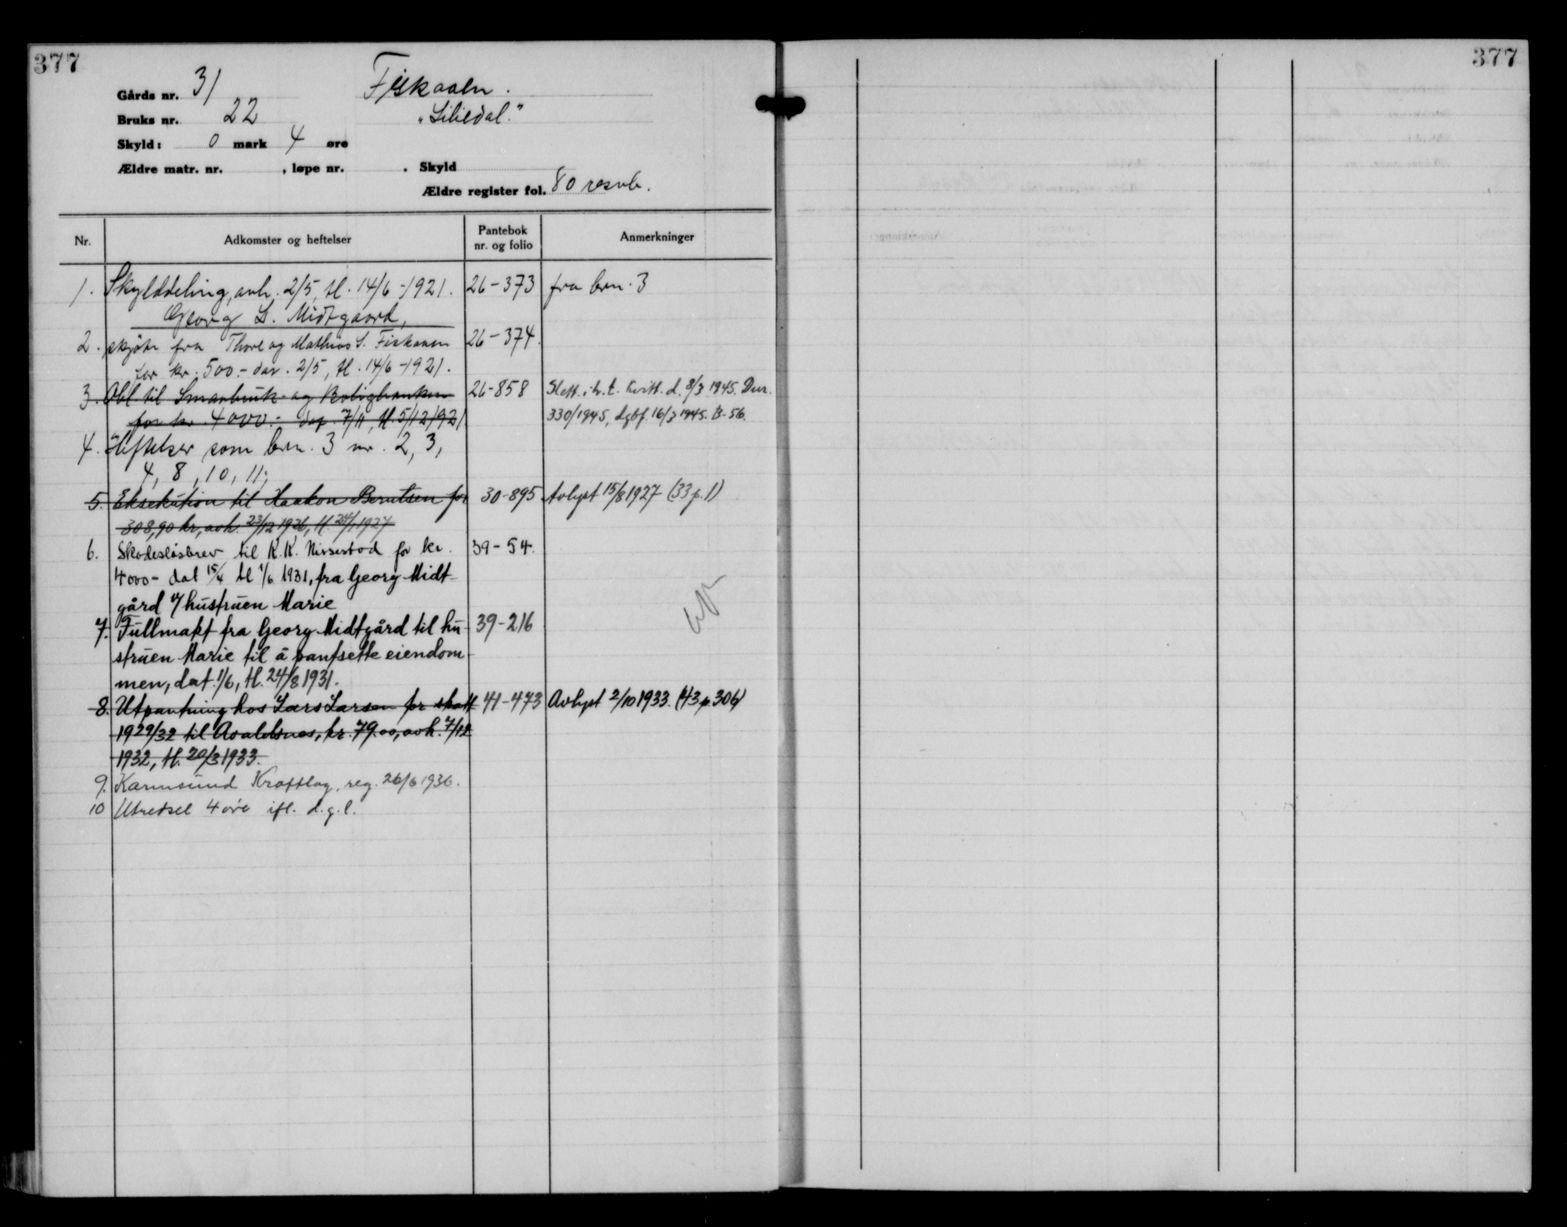 377
377
Gårds nr. 31 Fiskaaen.
Bruks nr. 22 "Liliedal."
Skyld: 0 mark 4 øre
Ældre matr. nr. , løpe nr. . Skyld
Ældre register fol. 80 resvb.
Nr. Adkomster og heftelser Pantebok nr. og folio Anmerkninger
1. Skylddeling, avh. 2/5, tl. 14/6-1921. 26-373 fra brn. 3
Georg L. Midtgaard,
2. skjøte fra Thore og Mathias S. Fiskaaen 26-374.
for kr. 500.- dat. 2/5, tl. 14/6-1921.
3. Obl til Smaabruk- og Boligbanken 26-858 Slett. i h. t. kvitt. d. 8/3 1945. Dnr.
for kr. 4000.- dat. 7/11, tl. 5/12/1921 330/1945, dgbf. 16/3 1945. B. 56.
4. Heftelser som brn. 3 nr. 2, 3,
4, 8, 10, 11;
5. Eksekution til Haakon Berntsen for 30-895 Avlyst 15/8 1927 (33 p. 1)
308,90 kr, avh. 23/12 1926, tl. 24/1 1927
6. Skadesløsbrev til K. K. for kr. 39-54.
4000- dat 15/4 tl 1/6 1931, fra Georg Midt-
gård m/ hustruen Marie
7. Fullmakt fra Georg Midtgård til hu- 39-216
struen Marie til å pantsette eiendom-
men, dat. 1/6, tl. 24/8 1931.
8. Utpantning hos Lars Larsen for skatt 41-473 Avlyst 2/10 1933. (43 p. 306)
1929/32 til Avaldsnes, kr. 79.00, avh. 7/12
1932, tl. 20/3 1933.
9. Karmsund Kraftlag, reg. 26/6 1936.
10 Utredsel 4 øre ifl. d.g.l.